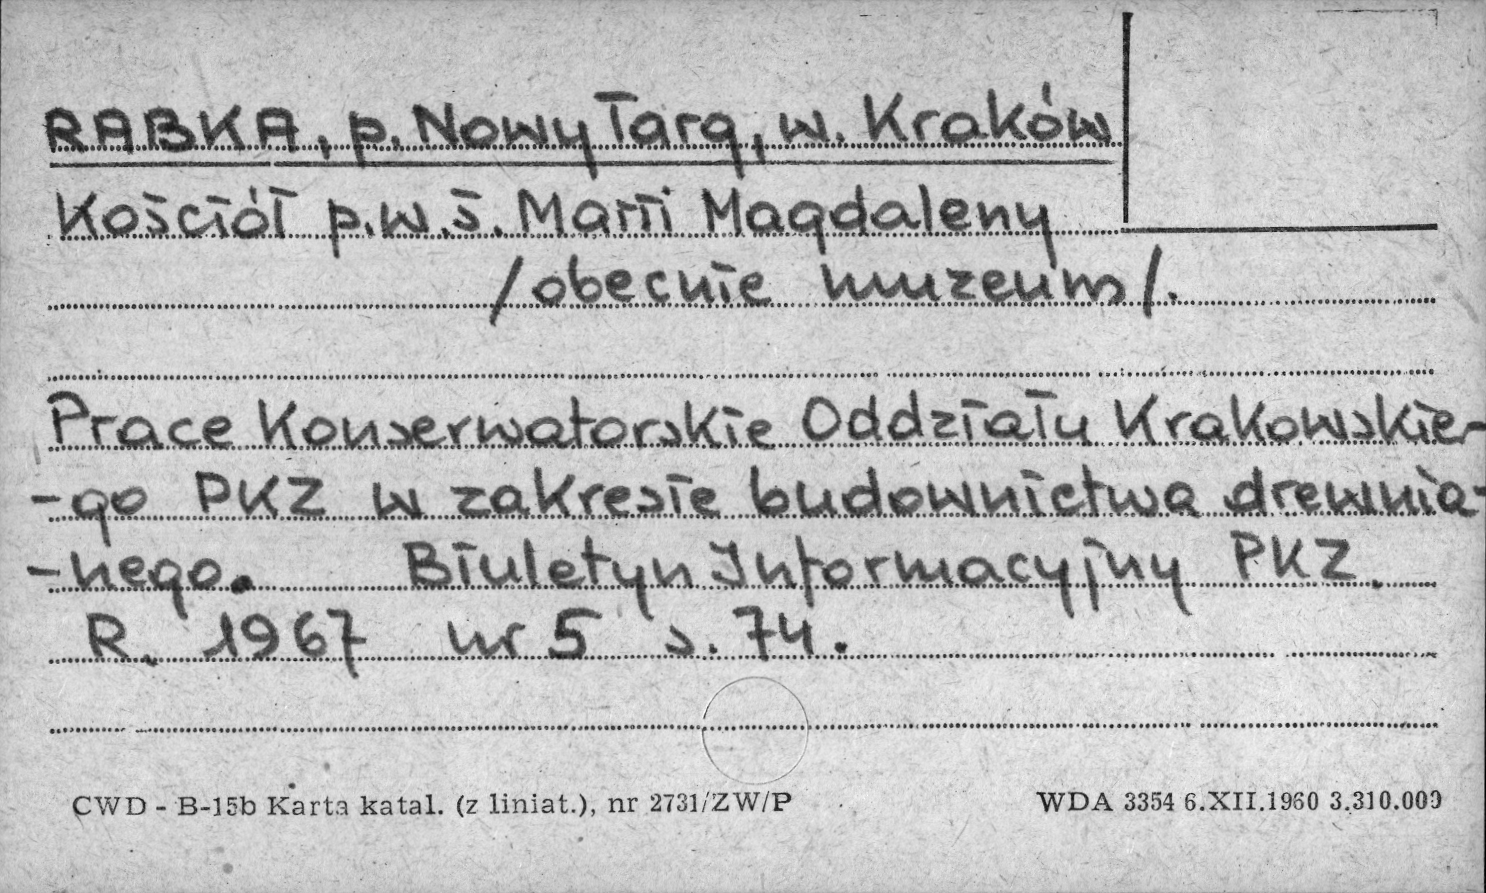 RABKA, p. Nowy Targ, w. Kraków
Kościół p.w. ś. Marii Magdaleny
/obecnie muzeum/.
Prace Konserwatorskie Oddziału Krakowskie-
-go PKZ w zakresie budownictwa drewnia-
-nego. Biuletyn Informacyjny PKZ.
R. 1967 nr 5 s. 74.
CWD - B-15b Karta katal. (z liniat.), nr 2731/ZW/P WDA 3354 6.XII.1960 3.310.000